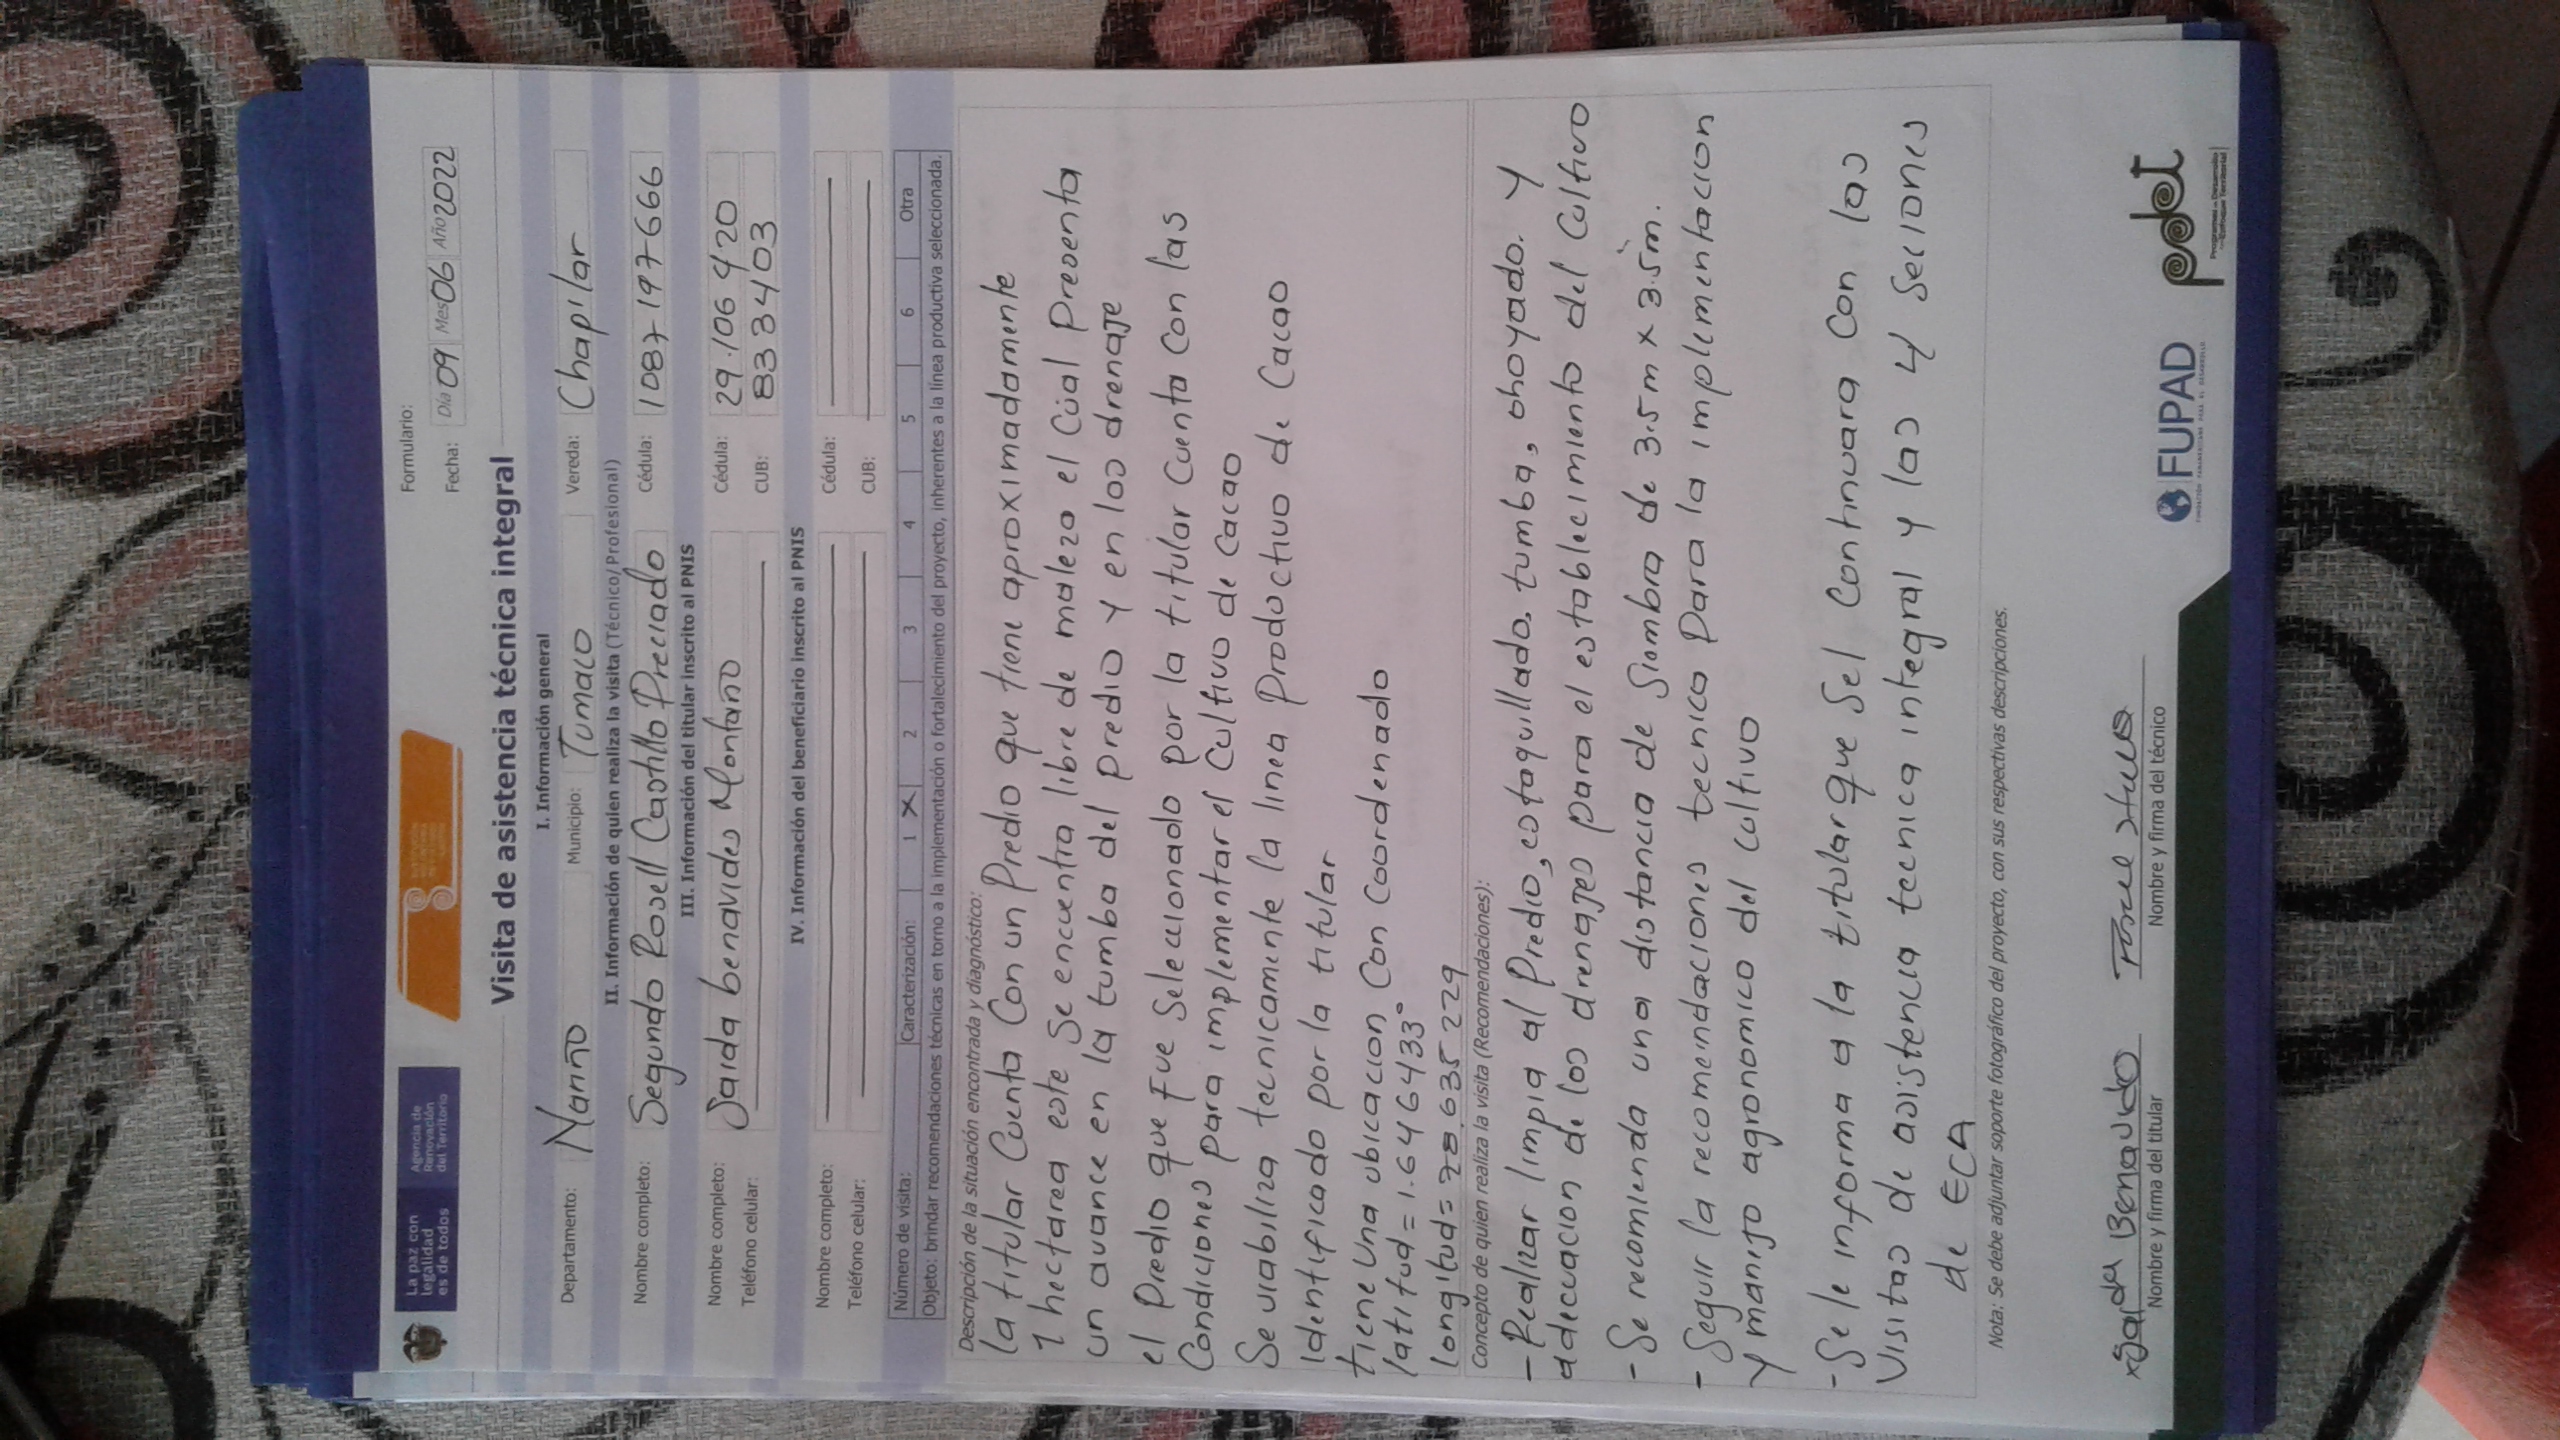 La paz con
legalidad
es de todos
Agencia de
Renovación
del Territorio
Formulario:
Fecha: Día 09 Mes 06 Año 2022
Visita de asistencia técnica integral
I. Información general
Departamento: Nariño Municipio: Tumaco Vereda: Chapilar
II. Información de quien realiza la visita (Técnico/Profesional)
Nombre completo: Segundo Rosell Castillo Preciado Cédula: 1087197666
III. Información del titular inscrito al PNIS
Nombre completo: Saida benavides Montaño Cédula: 29.106420
Teléfono celular: CUB: 8334403
IV. Información del beneficiario inscrito al PNIS
Nombre completo: Cédula:
Teléfono celular: CUB:
Número de visita: Caracterización: 1 X 2 3 4 5 6 Otra
Objeto: brindar recomendaciones técnicas en torno a la implementación o fortalecimiento del proyecto, inherentes a la línea productiva seleccionada.
Descripción de la situación encontrada y diagnóstico:
la titular Cuenta Con un Predio que tiene aproximadamente
1 hectarea este se encuentra libre de malezo el Cual Presenta
un avance en la tumba del Predio y en los drenaje
el Predio que fue Seleccionado por la titular Cuenta Con las
Condiciones para implementar el Cultivo de Cacao
Se viabiliza tecnicamente la linea Productivo de Cacao
identificado por la titular
tiene una ubicacion Con Coordenado
latitud = 1.646433°
longitud = 635229
Concepto de quien realiza la visita (Recomendaciones):
- Realizar limpia al Predio, estaquillado, tumba, ahoyado. Y
adecuacion de los drenajes para el establecimiento del Cultivo
- Se recomienda una distancia de Siembra de 3.5m x 3.5m.
- Seguir la recomendaciones tecnico Para la implementacion
y manijo agronomico del cultivo
- Se le informa a la titular que Sel Continuara Con las
Visitas de asistencia tecnica integral y las 4 Seciones
de ECA
Nota: Se debe adjuntar soporte fotográfico del proyecto, con sus respectivas descripciones.
Nombre y firma del titular
Nombre y firma del técnico
FUPAD
pdet
Programas de Desarrollo
con Enfoque Territorial